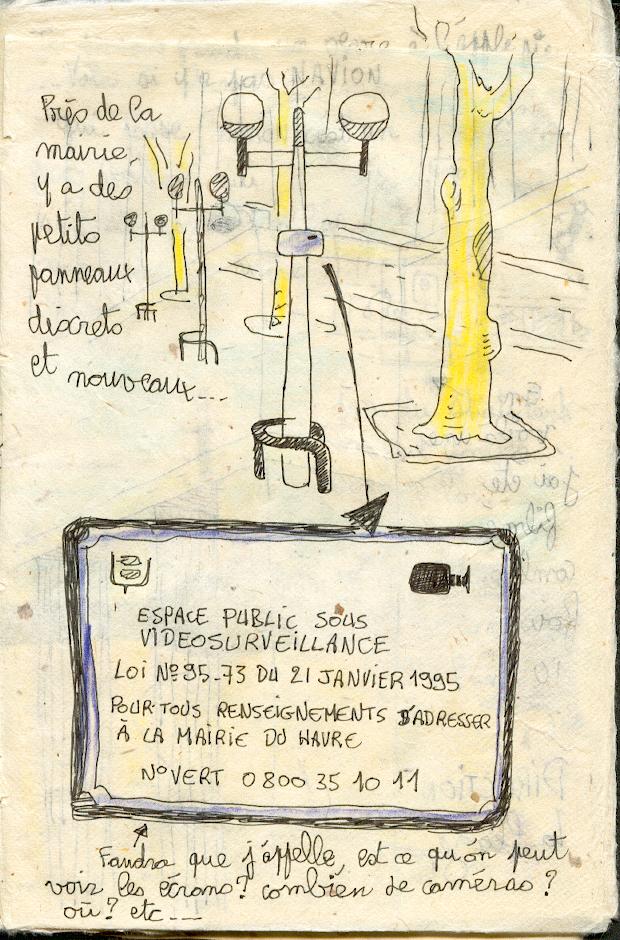 Près de la
mairie,
y a des
petits
panneaux
discrets
et nouveaux...
ESPACE PUBLIC SOUS
VIDEOSURVEILLANCE
LOI Nº95-73 DU 21 JANVIER 1995
POUR TOUS RENSEIGNEMENTS S'ADRESSER
À LA MAIRIE DU HAVRE
Nº VERT 0800 35 10 11
Faudra que j'appelle, est ce qu'on peut
voir les écrans? combien de caméras?
où? etc...